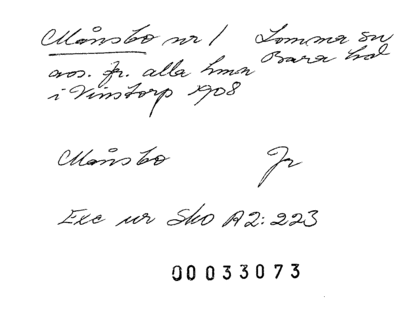 Månsbo nr 1 Lomma sn
avs. fr. alla hmn Bara hd
i Vinstorp 1908
Månsbo Jr
Exc ur Sko A2: 223
00033073